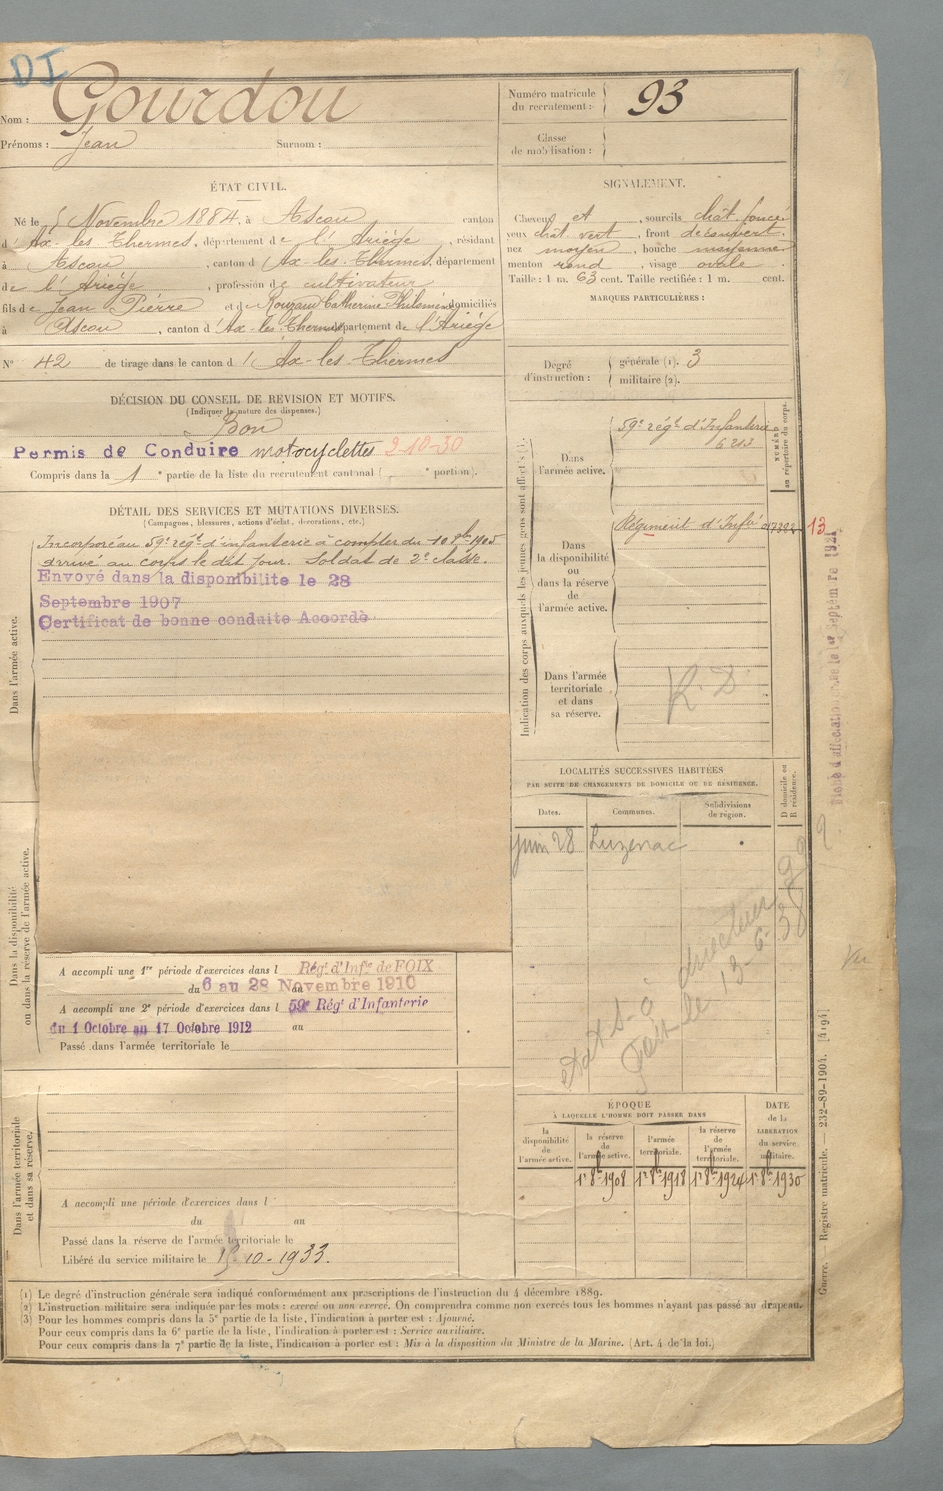 DI
Nom : Gourdou
Prénoms : Jean Surnom :
Numéro matricule du recrutement : 93
Classe de mobilisation :
ÉTAT CIVIL.
Né le 5 Novembre 1884, à Ascou canton
d' Ax-les-Thermes, département de l'Ariège, résidant
à Ascou, canton d' Ax-les-Thermes, département
de l'Ariège, profession de cultivateur
fils de Jean Pierre et de Rouzaud Catherine Philomène domiciliés
à Ascou, canton d' Ax-les-Thermes département de l'Ariège
N° 42 de tirage dans le canton d' Ax-les-Thermes
SIGNALEMENT.
Cheveux et, sourcils chât. foncé
yeux chât. vert, front découvert
nez moyen, bouche moyenne
menton rond, visage ovale
Taille : 1 m. 63 cent. Taille rectifiée : 1 m. cent.
MARQUES PARTICULIÈRES :
Degré d'instruction : générale (1). 3
militaire (2).
DÉCISION DU CONSEIL DE RÉVISION ET MOTIFS.
(Indiquer la nature des dispenses.)
Bon
Permis de Conduire motocyclettes 2-10-30
Compris dans la 1e partie de la liste du recrutement cantonal ( e portion).
DÉTAIL DES SERVICES ET MUTATIONS DIVERSES.
(Campagnes, blessures, actions d'éclat, décorations, etc.)
Dans l'armée active.
Incorporé au 59e régt d'infanterie à compter du 10 8bre 1905
arrivé au corps le dit jour. Soldat de 2e classe.
Envoyé dans la disponibilité le 28
Septembre 1907
Certificat de bonne conduite Accordé
Indication des corps auxquels les jeunes gens sont affectés (3).
NUMÉRO au répertoire du corps.
Dans l'armée active.
59e régt d'Infanterie
6213
Dans la disponibilité ou dans la réserve de l'armée active.
Régiment d'Infie
13
Dans l'armée territoriale et dans sa réserve.
R. D
septembre 192
LOCALITÉS SUCCESSIVES HABITÉES
PAR SUITE DE CHANGEMENTS DE DOMICILE OU DE RÉSIDENCE.
D domicile ou R résidence.
Dates. Communes. Subdivisions de région.
Juin 28 Luzenac
Dans la disponibilité ou dans la réserve de l'armée active.
A accompli une 1re période d'exercices dans l Régt d'Infie de FOIX
du 6 au 28 Novembre 1910
A accompli une 2e période d'exercices dans l 59e Régt d'Infanterie
du 1 Octobre au 17 Octobre 1912 au
Passé dans l'armée territoriale le
directeur
le 13-6-38
Vu
Dans l'armée territoriale et dans sa réserve.
A accompli une période d'exercices dans l
du au
Passé dans la réserve de l'armée territoriale le
Libéré du service militaire le 15-10-1933.
ÉPOQUE
À LAQUELLE L'HOMME DOIT PASSER DANS
DATE de la LIBÉRATION du service militaire.
la disponibilité de l'armée active.
la réserve de l'armée active.
l'armée territoriale.
la réserve de l'armée territoriale.
1r 8b 1908 1r 8b 1918 1r 8b 1924 1r 8b 1930
Guerre. — Registre matricule. — 232-89-1904. [4194]
(1) Le degré d'instruction générale sera indiqué conformément aux prescriptions de l'instruction du 4 décembre 1889.
(2) L'instruction militaire sera indiquée par les mots : exercé ou non exercé. On comprendra comme non exercés tous les hommes n'ayant pas passé au drapeau.
(3) Pour les hommes compris dans la 5e partie de la liste, l'indication à porter est : Ajourné.
Pour ceux compris dans la 6e partie de la liste, l'indication à porter est : Service auxiliaire.
Pour ceux compris dans la 7e partie de la liste, l'indication à porter est : Mis à la disposition du Ministre de la Marine. (Art. 4 de la loi.)